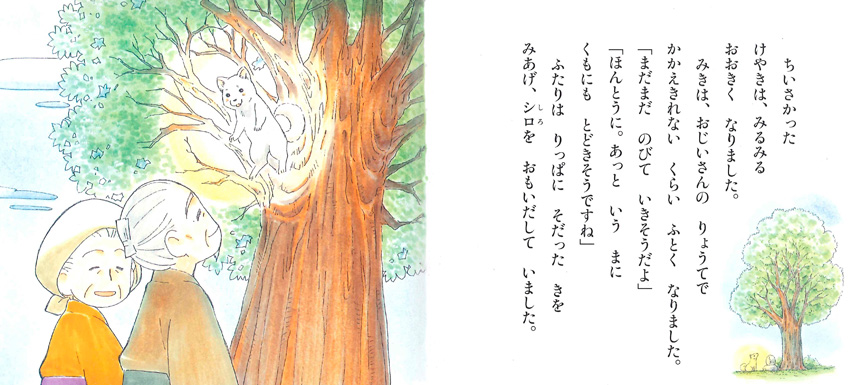 ちいさかった
けやきは、みるみる
おおきく なりました。
みきは、おじいさんの りょうてで
かかえきれない くらい ふとく なりました。
「まだまだ のびて いきそうだよ」
「ほんとうに。あっと いう まに
くもにも とどきそうですね」
ふたりは りっぱに そだった きを
みあげ、シロを おもいだして いました。
しろ